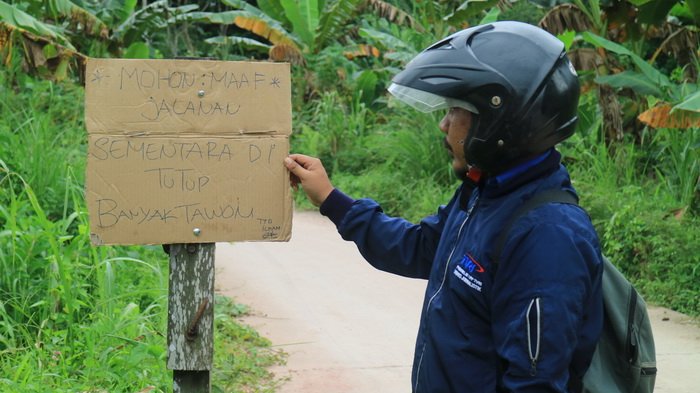 * MOHON : MAAF *
JALANAN
SEMENTARA DI
TUTUP
BANYAK TAWON